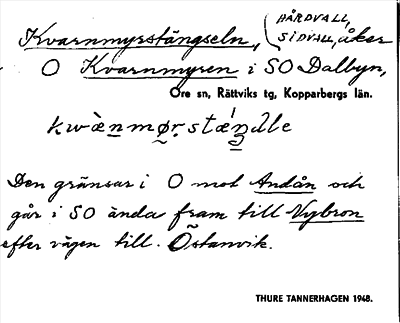 Kvarnmyrstängseln, (HÅRDVALL,
SIDVALL, åker
O Kvarnmyren i SO Dalbyn,
Ore sn, Rättviks tg, Kopparbergs län.
kwæ̀nmør̥stǽŋdle
Den gränsar i O mot Andån och
går i SO ända fram till Nybron
efter vägen till Östanvik.
THURE TANNERHAGEN 1948.